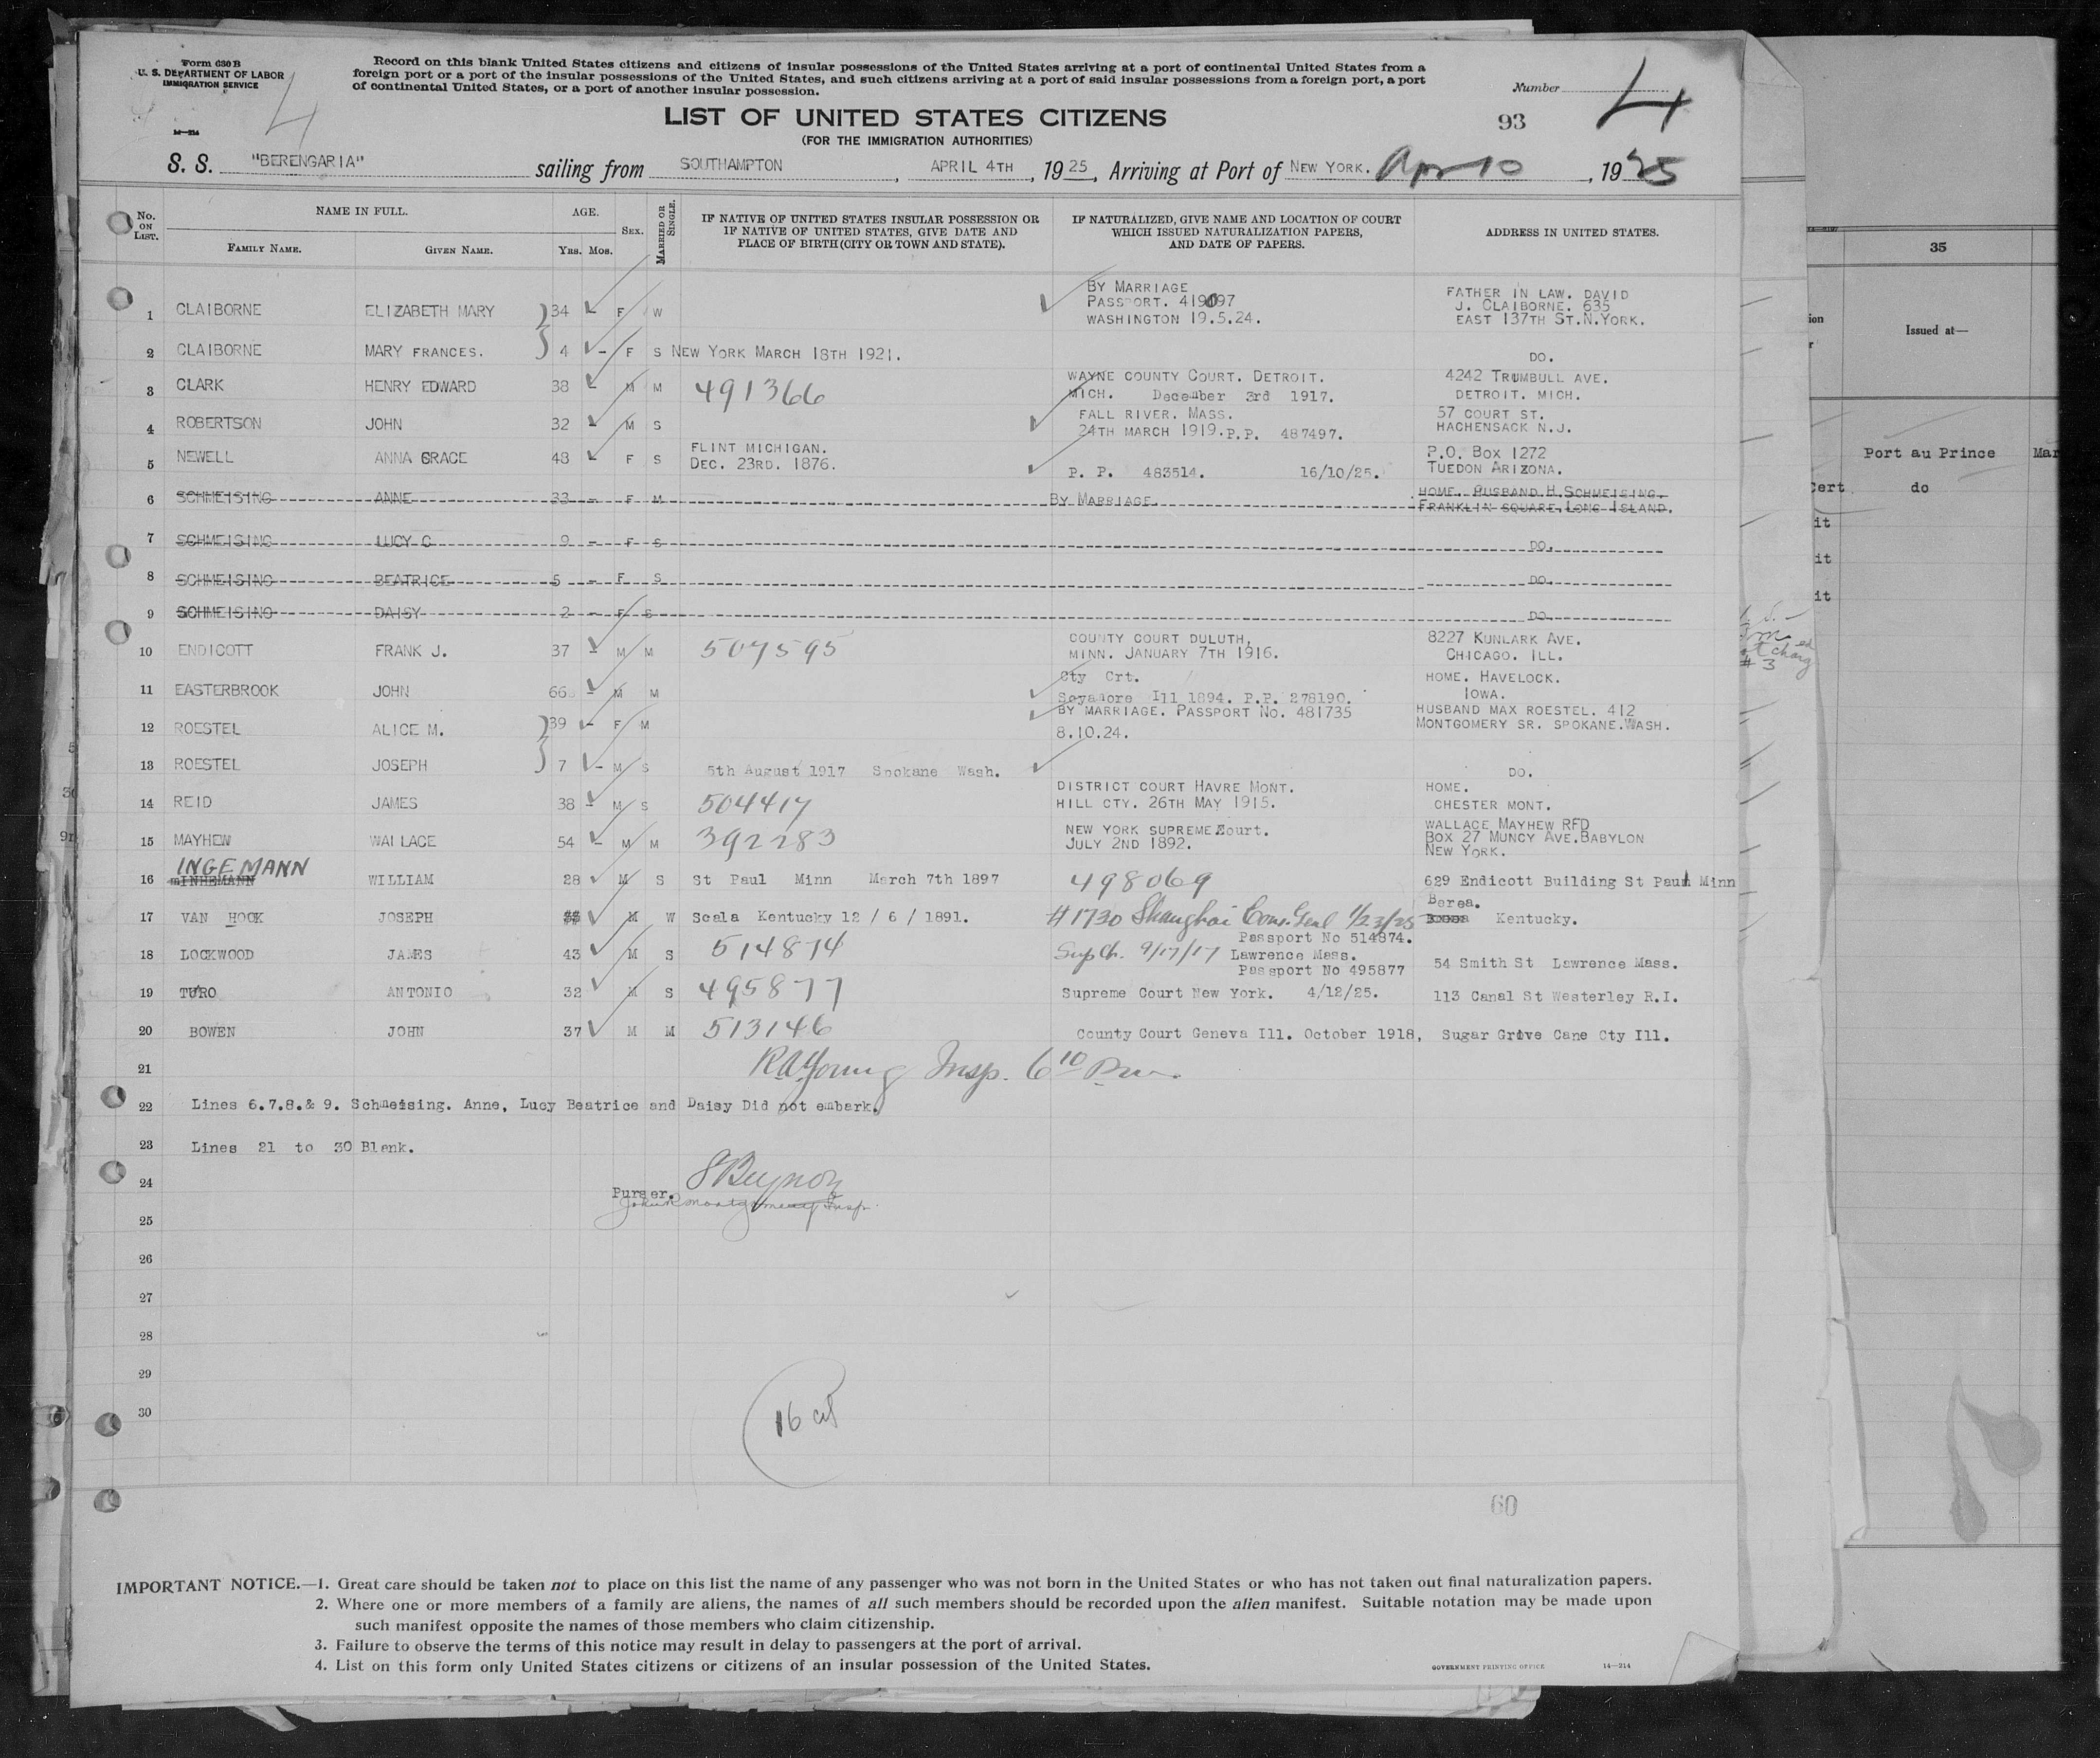 Form 630 B
U. S. DEPARTMENT OF LABOR
IMMIGRATION SERVICE
14—214
4
Record on this blank United States citizens and citizens of insular possessions of the United States arriving at a port of continental United States from a
foreign port or a port of the insular possessions of the United States, and such citizens arriving at a port of said insular possessions from a foreign port, a port
of continental United States, or a port of another insular possession.
Number 4
93
LIST OF UNITED STATES CITIZENS
(FOR THE IMMIGRATION AUTHORITIES)
S. S. "BERENGARIA" sailing from SOUTHAMPTON, APRIL 4TH, 1925, Arriving at Port of NEW YORK. Apr 10, 1925
No. ON LIST. NAME IN FULL. FAMILY NAME. GIVEN NAME. AGE. YRS. MOS. SEX. MARRIED OR SINGLE. IF NATIVE OF UNITED STATES INSULAR POSSESSION OR IF NATIVE OF UNITED STATES, GIVE DATE AND PLACE OF BIRTH (CITY OR TOWN AND STATE). IF NATURALIZED, GIVE NAME AND LOCATION OF COURT WHICH ISSUED NATURALIZATION PAPERS, AND DATE OF PAPERS. ADDRESS IN UNITED STATES.
1 CLAIBORNE ELIZABETH MARY 34 F W BY MARRIAGE PASSPORT. 419097 WASHINGTON 19.5.24. FATHER IN LAW. DAVID J. CLAIBORNE. 635 EAST 137TH ST.N.YORK.
2 CLAIBORNE MARY FRANCES. 4 - F S NEW YORK MARCH 18TH 1921. DO.
3 CLARK HENRY EDWARD 38 - M M 491366 WAYNE COUNTY COURT. DETROIT. MICH. December 3rd 1917. 4242 TRUMBULL AVE. DETROIT. MICH.
4 ROBERTSON JOHN 32 - M S FALL RIVER. MASS. 24TH MARCH 1919. P.P. 487497. 57 COURT ST. HACHENSACK N.J.
5 NEWELL ANNA GRACE 48 - F S FLINT MICHIGAN. DEC. 23RD. 1876. P. P. 483514. 16/10/25. P.O. BOX 1272 TUEDON ARIZONA.
6 SCHMEISING ANNE 33 - F M BY MARRIAGE. HOME. HUSBAND H.SCHMEISING. FRANKLIN SQUARE,LONG ISLAND.
7 SCHMEISING LUCY C 9 - F S DO.
8 SCHMEISING BEATRICE 5 - F S DO.
9 SCHMEISING DAISY 2 - F S DO.
10 ENDICOTT FRANK J. 37 - M M 507595 COUNTY COURT DULUTH, MINN. JANUARY 7TH 1916. 8227 KUNLARK AVE. CHICAGO. ILL.
11 EASTERBROOK JOHN 66 - M M Cty Crt. Ill 1894. P.P. 278190. HOME. HAVELOCK. IOWA.
12 ROESTEL ALICE M. 39 - F M BY MARRIAGE. PASSPORT NO. 481735 8.10.24. HUSBAND MAX ROESTEL. 412 MONTGOMERY SR. SPOKANE.WASH.
13 ROESTEL JOSEPH 7 - M S 5th August 1917 Spokane Wash. DO.
14 REID JAMES 38 - M S 504417 DISTRICT COURT HAVRE MONT. HILL CTY. 26TH MAY 1915. HOME. CHESTER MONT.
15 MAYHEW WALLACE 54 - M M 392283 NEW YORK SUPREME Court. JULY 2ND 1892. WALLACE MAYHEW RFD BOX 27 MUNCY AVE.BABYLON NEW YORK.
INGEMANN
16 WILLIAM 28 M S St Paul Minn March 7th 1897 498069 629 Endicott Building St Paul Minn
17 VAN HOOK JOSEPH M W Scala Kentucky 12 / 6 / 1891. #1730 Shanghai Cons. Genl 1/23/25 Berea. Kentucky.
18 LOCKWOOD JAMES 43 M S 514874 Passport No 514874. Sup Ct. 9/17/17 Lawrence Mass. 54 Smith St Lawrence Mass.
19 TURO ANTONIO 32 M S 495877 Passport No 495877 Supreme Court New York. 4/12/25. 113 Canal St Westerley R.I.
20 BOWEN JOHN 37 M M 513146 County Court Geneva Ill. October 1918, Sugar Grove Cane Cty Ill.
21 R A Young Insp. 6 10 Pm.
22 Lines 6.7.8.& 9. Schmeising. Anne, Lucy Beatrice and Daisy Did not embark.
23 Lines 21 to 30 Blank.
24 Purser.
John R Montgomery Insp.
25
26
27
28
29
30
16
60
IMPORTANT NOTICE.—1. Great care should be taken not to place on this list the name of any passenger who was not born in the United States or who has not taken out final naturalization papers.
2. Where one or more members of a family are aliens, the names of all such members should be recorded upon the alien manifest. Suitable notation may be made upon
such manifest opposite the names of those members who claim citizenship.
3. Failure to observe the terms of this notice may result in delay to passengers at the port of arrival.
4. List on this form only United States citizens or citizens of an insular possession of the United States.
GOVERNMENT PRINTING OFFICE 14—214
35
Issued at—
Port au Prince
do